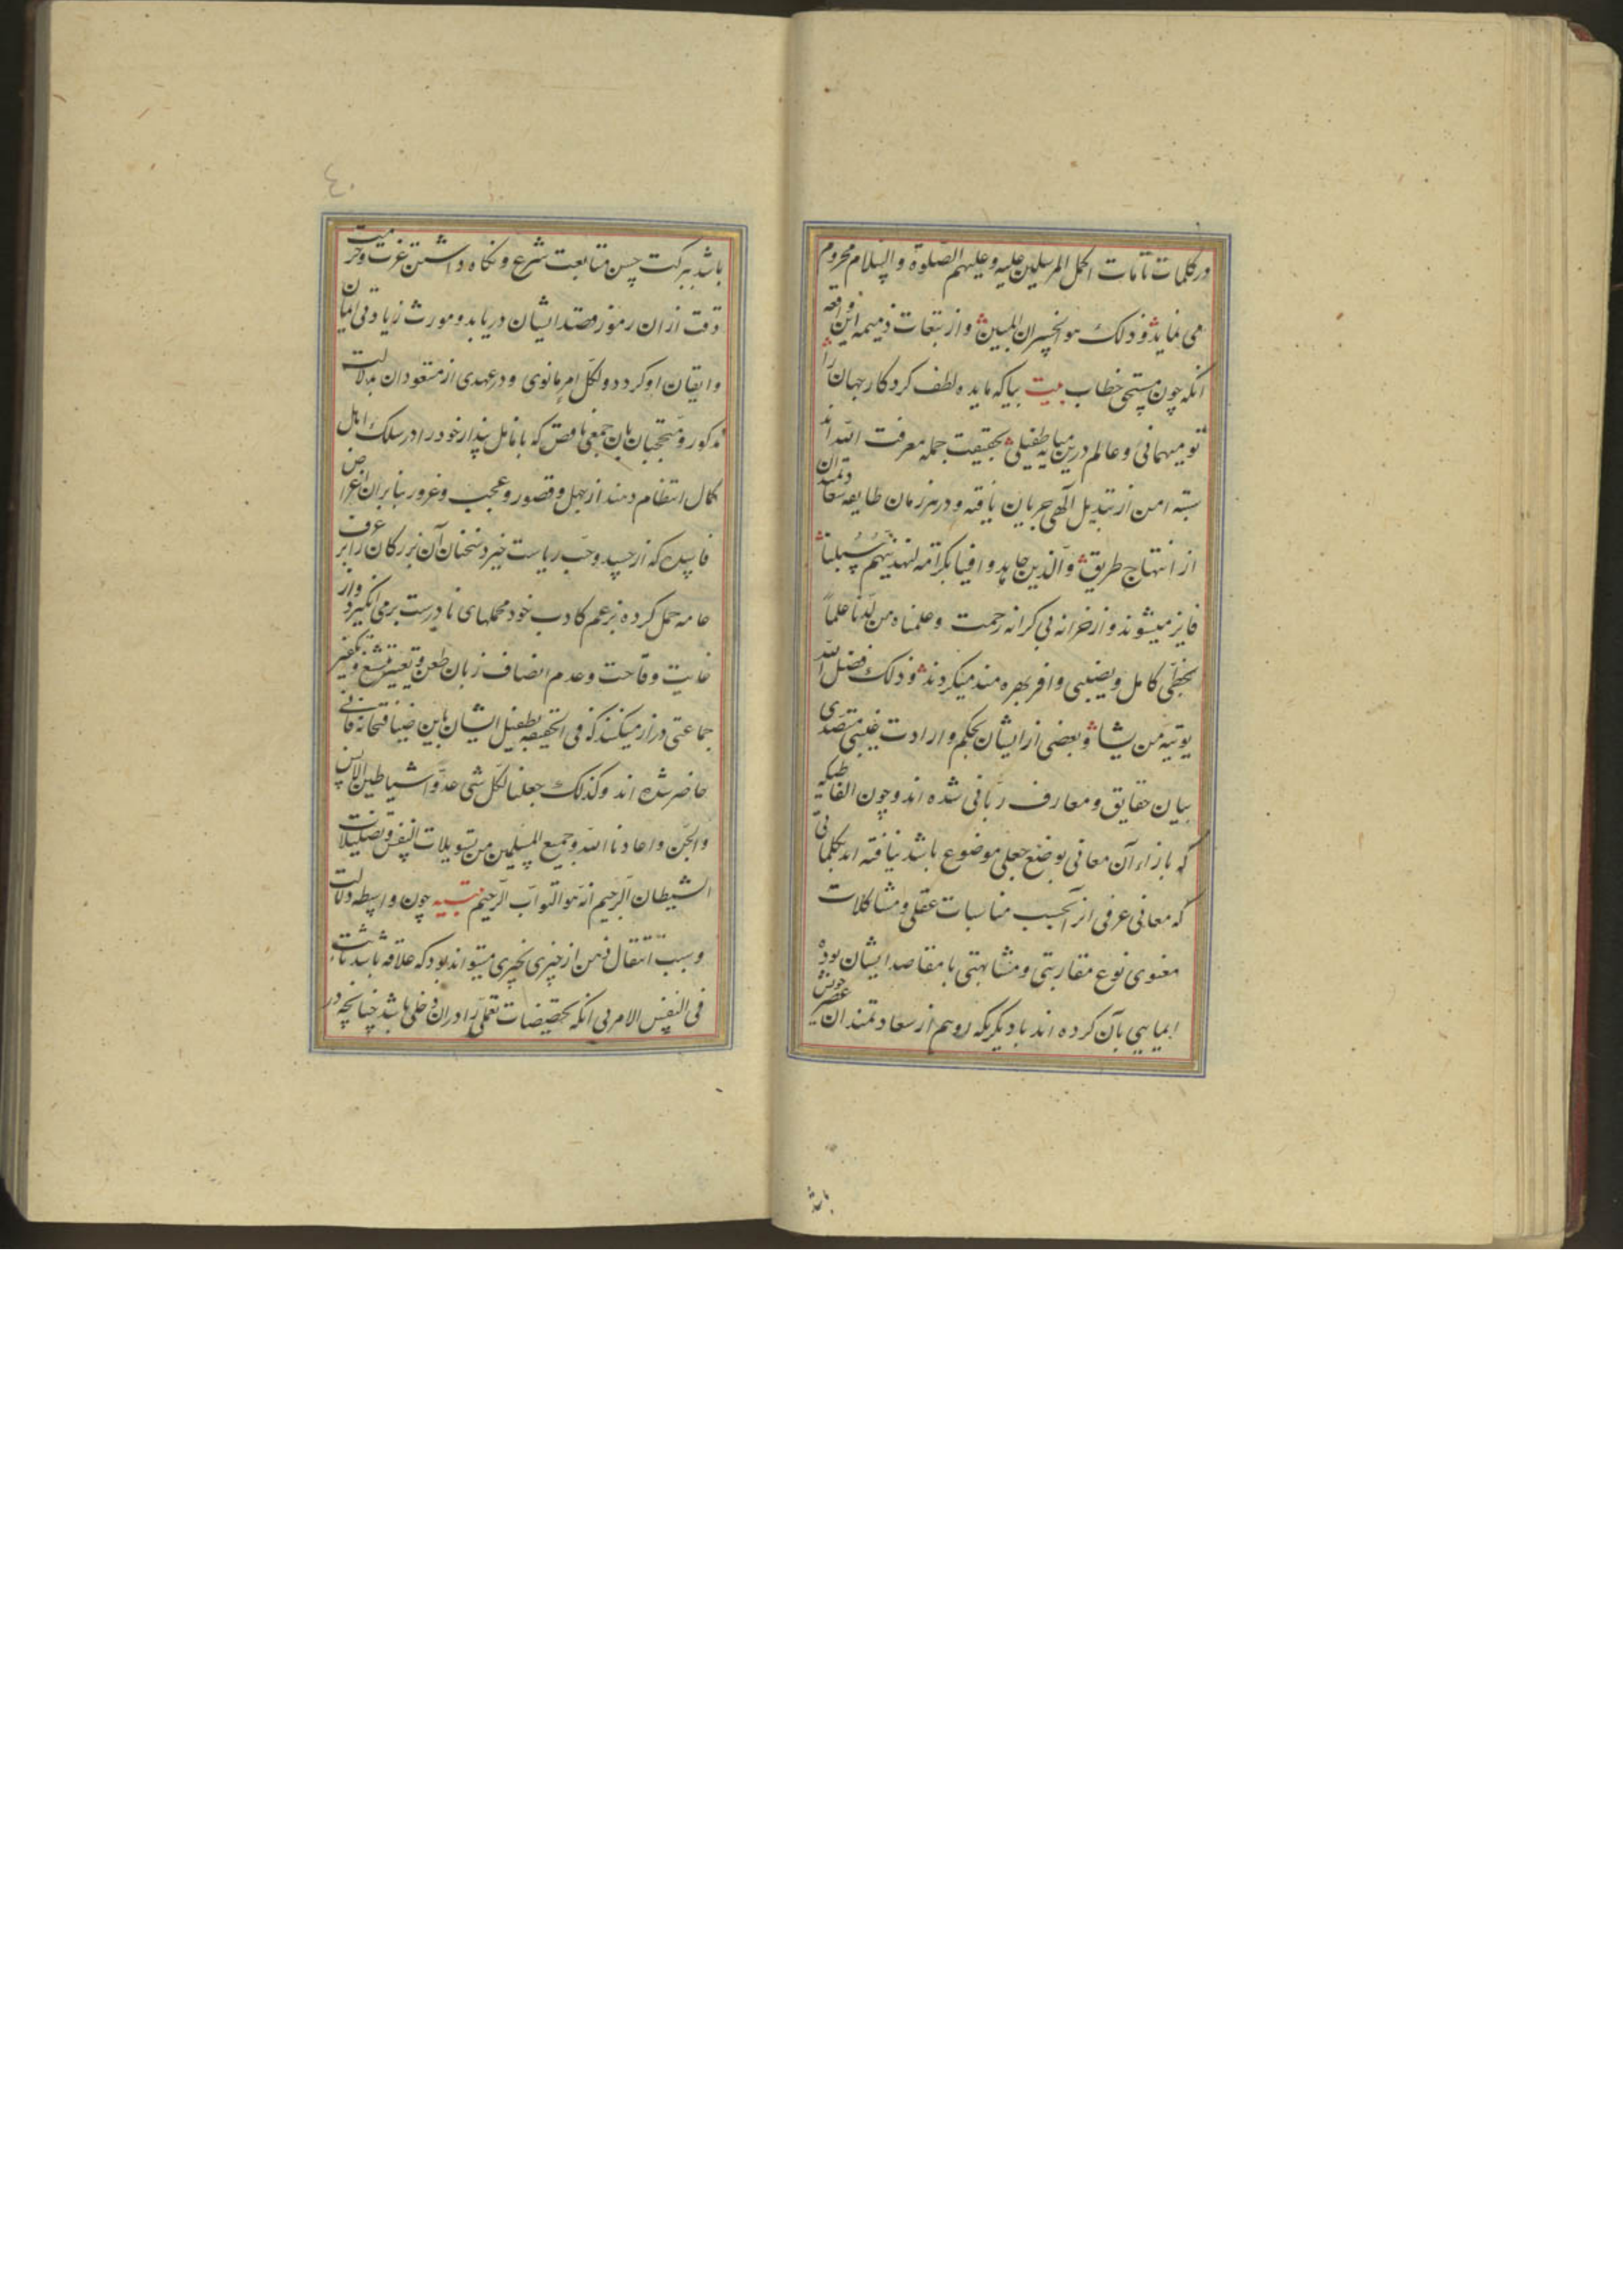 در کلمات تامات اکمل المرسلین علیه وعلیهم الصلوة والسلام محروم
می نماید وذلک هو الخسران المبین واز تبعات ذمیمه این واقعه
انکه چون مستحق خطاب بیت بیا که مایده لطف کردکار جهان را
تو میهمانی وعالم درین میانه طفیلی بحقیقت جمله معرفت الله اند
بسته امن از تبدیل آلهی جریان یافته ودر هر زمان طایفه سعادتمندان
از انتهاج طریق والذین جاهدوا فینا بکرامة لنهدینهم سبلنا
فایز میشوند واز خزانه بی کرانه رحمت وعلمناه من لدنا علما
بحظی کامل ونصیبی وافر بهره مند میکردند وذلک فضل الله
یوتیه من یشاء وبعضی از ایشان بحکم وارادت غیبی متصدی
بیان حقایق ومعارف ربانی شده اند وچون الفاظیکه
که بازاء آن معانی بوضع جعلی موضوع باشد نیافته اند بکلماتی
که معانی عرفی انرا بحسب مناسبات عقلی ومشاکلات
معنوی نوع مقاربتی ومشابهتی با مقاصد ایشان بوده
ایمایی بآن کرده اند تا دیکریکه او هم از سعادتمندان عصر خویش
باشد
باشد ببرکت حسن متابعت شرع ونکاه داشتن عزت وحرمت
دقت از ان رموز قصد ایشان دریابد ومورث زیادتی ایمان
وایقان او کردد ولکل امرء مانوی ودر عهدی از مسعودان بدلالت
مذکور ومنتخبان بان جمعی ناقص که بانامل پندار خود را در سلک اهل
کمال انتظام دهند از جهل وقصور وعجب وغرور بنابر ان اغراض
فاسده که از حسد وحب ریاست خیزد سخنان آن بزرکان را بر عرف
عامه حمل کرده بزعم کاذب خود محملهای نادرست برمی انکیزد واز
غایت وقاحت وعدم انصاف زبان طعن وتعییر وتشنیع وتکفیر
جماعتی دراز میکنند که فی الحقیقه بطفیل ایشان باین ضیافتخانه فانی
حاضر شده اند وکذلک جعلنا لکل شی عدوا شیاطین الانس
والجن واعاذنا الله وجمیع المسلمین من تسویلات النفس وتضلیلات
الشیطان الرجیم انه هو التواب الرحیم تنبیه چون واسطه دلالت
وسبب انتقال ذهن از چیزی بچیزی میتواند بود که علاقه باشد ثابت
فی النفس الامر بی انکه تخصیصات تعملی را دران دخلی باشد چنانچه در